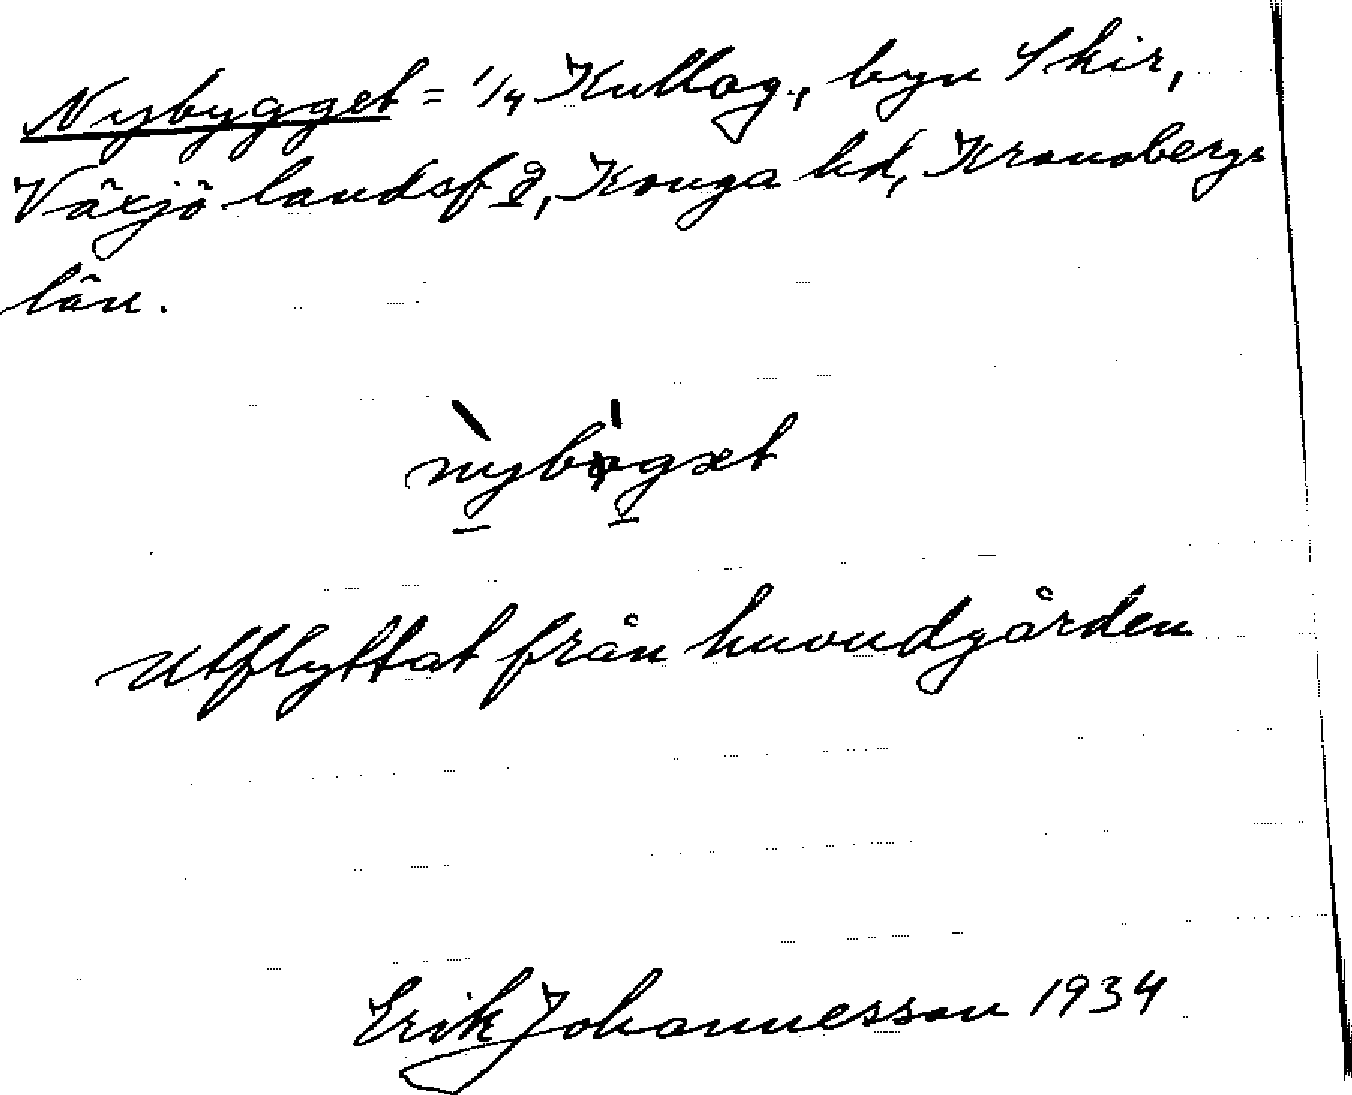 Nybygget = 1/4 Kullag., byn Skir,
Växjö landsf o, Konga hd, Kronobergs
län.
nybygæt
Utflyttat från huvudgården
Erik Johannesson 1934